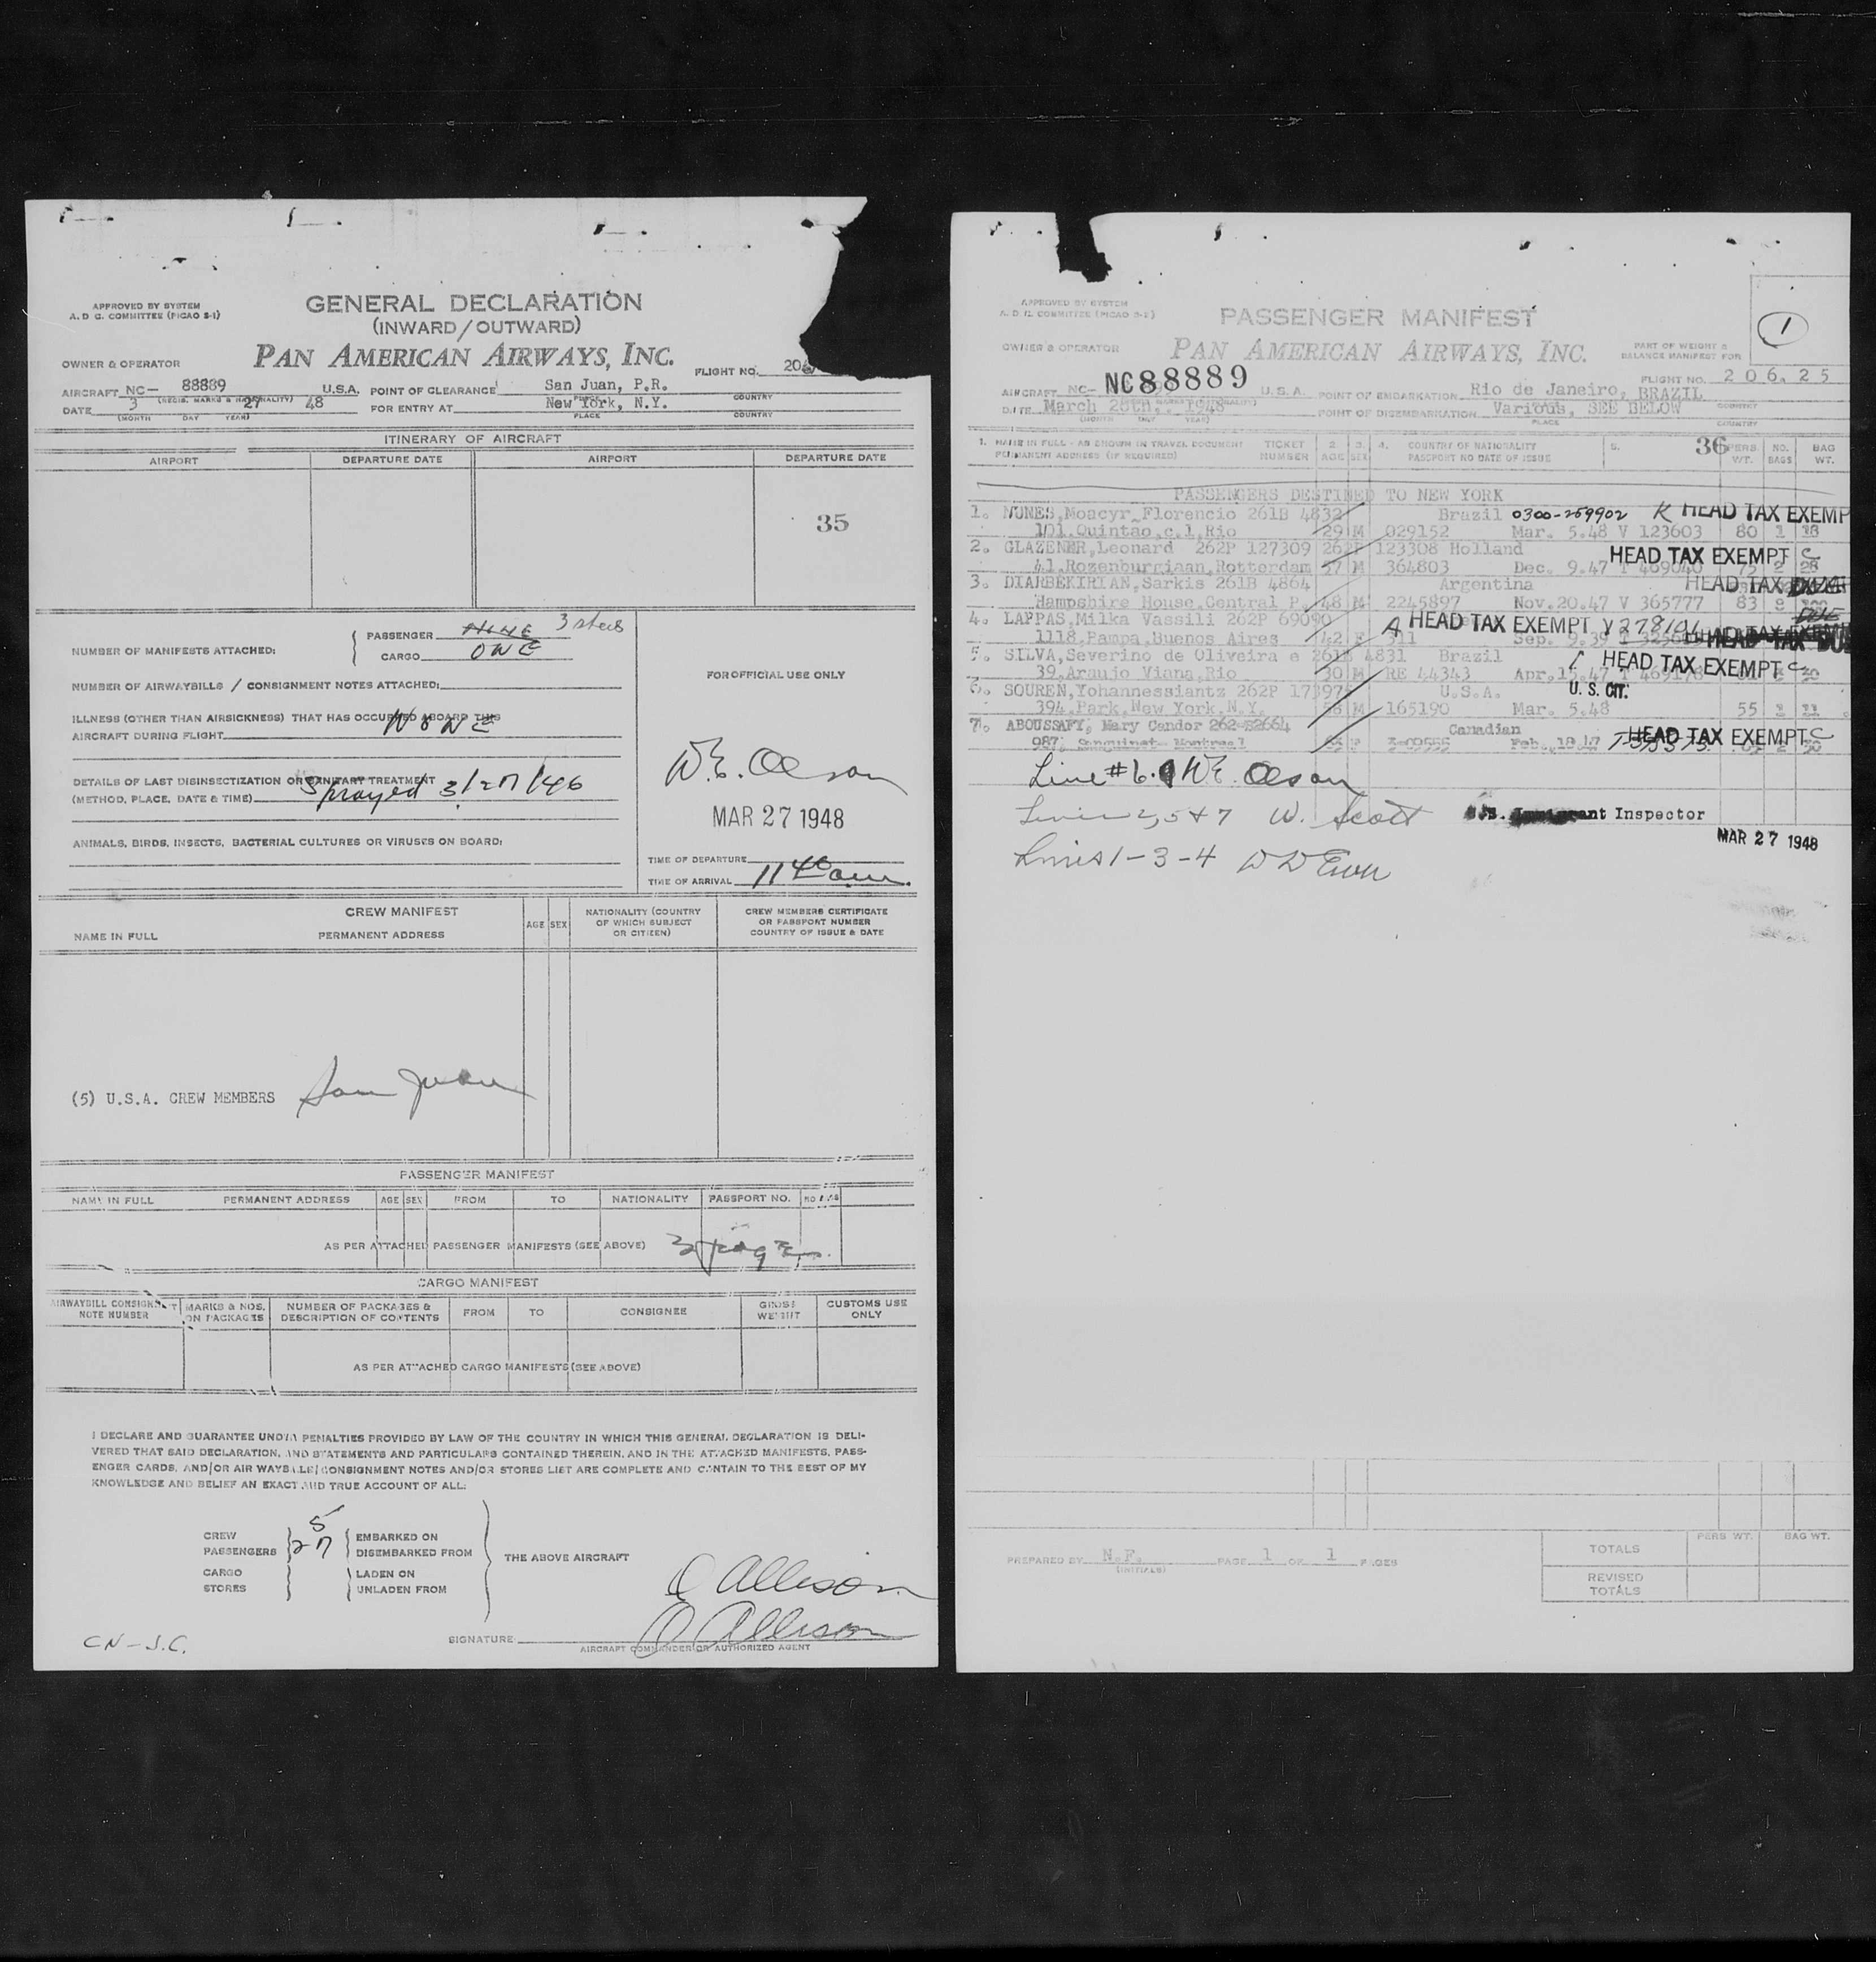 APPROVED BY SYSTEM
A. D C. COMMITTEE (PICAO S-1)
GENERAL DECLARATION
(INWARD/OUTWARD)
OWNER & OPERATOR
PAN AMERICAN AIRWAYS, INC.
FLIGHT NO. 206
AIRCRAFT NC- 88889 U.S.A. POINT OF CLEARANCE San Juan, P.R.
(REGIS. MARKS & NATIONALITY) PLACE COUNTRY
DATE 3 27 48 FOR ENTRY AT New York, N.Y.
(MONTH DAY YEAR) PLACE COUNTRY
ITINERARY OF AIRCRAFT
AIRPORT DEPARTURE DATE AIRPORT DEPARTURE DATE
35
NUMBER OF MANIFESTS ATTACHED: PASSENGER 3
CARGO ONE
FOR OFFICIAL USE ONLY
NUMBER OF AIRWAYBILLS / CONSIGNMENT NOTES ATTACHED:
ILLNESS (OTHER THAN AIRSICKNESS) THAT HAS OCCURRED ABOARD THIS
AIRCRAFT DURING FLIGHT NONE
DETAILS OF LAST DISINSECTIZATION OR SANITARY TREATMENT
(METHOD, PLACE, DATE & TIME) Sprayed 3/27/46
W.E. Olson
MAR 27 1948
ANIMALS, BIRDS, INSECTS, BACTERIAL CULTURES OR VIRUSES ON BOARD:
TIME OF DEPARTURE
TIME OF ARRIVAL 11 40 am.
CREW MANIFEST
NAME IN FULL PERMANENT ADDRESS AGE SEX NATIONALITY (COUNTRY OF WHICH SUBJECT OR CITIZEN) CREW MEMBERS CERTIFICATE OR PASSPORT NUMBER COUNTRY OF ISSUE & DATE
(5) U.S.A. CREW MEMBERS San Juan
PASSENGER MANIFEST
NAME IN FULL PERMANENT ADDRESS AGE SEX FROM TO NATIONALITY PASSPORT NO.
AS PER ATTACHED PASSENGER MANIFESTS (SEE ABOVE) 3 pages
CARGO MANIFEST
AIRWAYBILL CONSIGNMT NOTE NUMBER MARKS & NOS. ON PACKAGES NUMBER OF PACKAGES & DESCRIPTION OF CONTENTS FROM TO CONSIGNEE GROSS WEIGHT CUSTOMS USE ONLY
AS PER ATTACHED CARGO MANIFESTS (SEE ABOVE)
I DECLARE AND GUARANTEE UNDER PENALTIES PROVIDED BY LAW OF THE COUNTRY IN WHICH THIS GENERAL DECLARATION IS DELI-
VERED THAT SAID DECLARATION, AND STATEMENTS AND PARTICULARS CONTAINED THEREIN, AND IN THE ATTACHED MANIFESTS, PASS-
ENGER CARDS, AND/OR AIR WAYBILLS/CONSIGNMENT NOTES AND/OR STORES LIST ARE COMPLETE AND CONTAIN TO THE BEST OF MY
KNOWLEDGE AND BELIEF AN EXACT AND TRUE ACCOUNT OF ALL:
CREW 5 EMBARKED ON
PASSENGERS 27 DISEMBARKED FROM
THE ABOVE AIRCRAFT
CARGO LADEN ON
STORES UNLADEN FROM
O Allison
SIGNATURE: O Allison
AIRCRAFT COMMANDER OR AUTHORIZED AGENT
CN-J.C.
APPROVED BY SYSTEM
A. D. C. COMMITTEE (PICAO S-2)
PASSENGER MANIFEST
1
OWNER & OPERATOR
PAN AMERICAN AIRWAYS, INC.
PART OF WEIGHT &
BALANCE MANIFEST FOR
FLIGHT NO. 206.25
AIRCRAFT NC- NC88889 U.S.A. POINT OF EMBARKATION Rio de Janeiro, BRAZIL
DATE March 26th., 1948 POINT OF DISEMBARKATION Various, SEE BELOW
(MONTH DAY YEAR) PLACE COUNTRY
1. NAME IN FULL - AS SHOWN IN TRAVEL DOCUMENT TICKET 2. 3. 4. COUNTRY OF NATIONALITY 5. 36 PERS. NO. BAG
PERMANENT ADDRESS (IF REQUIRED) NUMBER AGE SEX PASSPORT NO DATE OF ISSUE WT. BAGS WT.
PASSENGERS DESTINED TO NEW YORK
1. NUNES, Moacyr Florencio 261B 4832 Brazil 0300-259902 K HEAD TAX EXEMP
101.Quintao,c.1,Rio 29 M 029152 Mar. 5.48 V 123603 80 1 18
2. GLAZENER, Leonard 262P 127309 262P 123308 Holland HEAD TAX EXEMPT C
41.Rozenburglaan,Rotterdam 57 M 364803 Dec. 9.47 T 469040 75 2 28
3. DIARBEKIRIAN, Sarkis 261B 4864 Argentina HEAD TAX
Hampshire House,Central P. 48 M 2245897 Nov.20.47 V 365777 83
4. LAPPAS, Milka Vassili 262P 69090 A HEAD TAX EXEMPT V278101
1118,Pampa,Buenos Aires 42 F Sep. 9.39
5. SILVA, Severino de Oliveira e 261B 4831 Brazil HEAD TAX EXEMPT C
39,Araujo Viana,Rio 30 M RE 44343 Apr.15.47 T 469178
6. SOUREN, Yohannessiantz 262P 17397 U.S.A. U. S. CIT.
394,Park,New York,N.Y. 58 M 165190 Mar. 5.48 55
7. ABOUSSAFY, Mary Candor 262-82664 Canadian HEAD TAX EXEMPT C
987, Sanguinet- Montreal F 3-09555 Feb. 18.47
Line #6. W.E. Olson
Lines 2, 5 & 7 W. Scott Inspector
MAR 27 1948
Lines 1-3-4
PREPARED BY N.F. PAGE 1 OF 1 PAGES
(INITIALS)
PERS WT. BAG WT.
TOTALS
REVISED
TOTALS